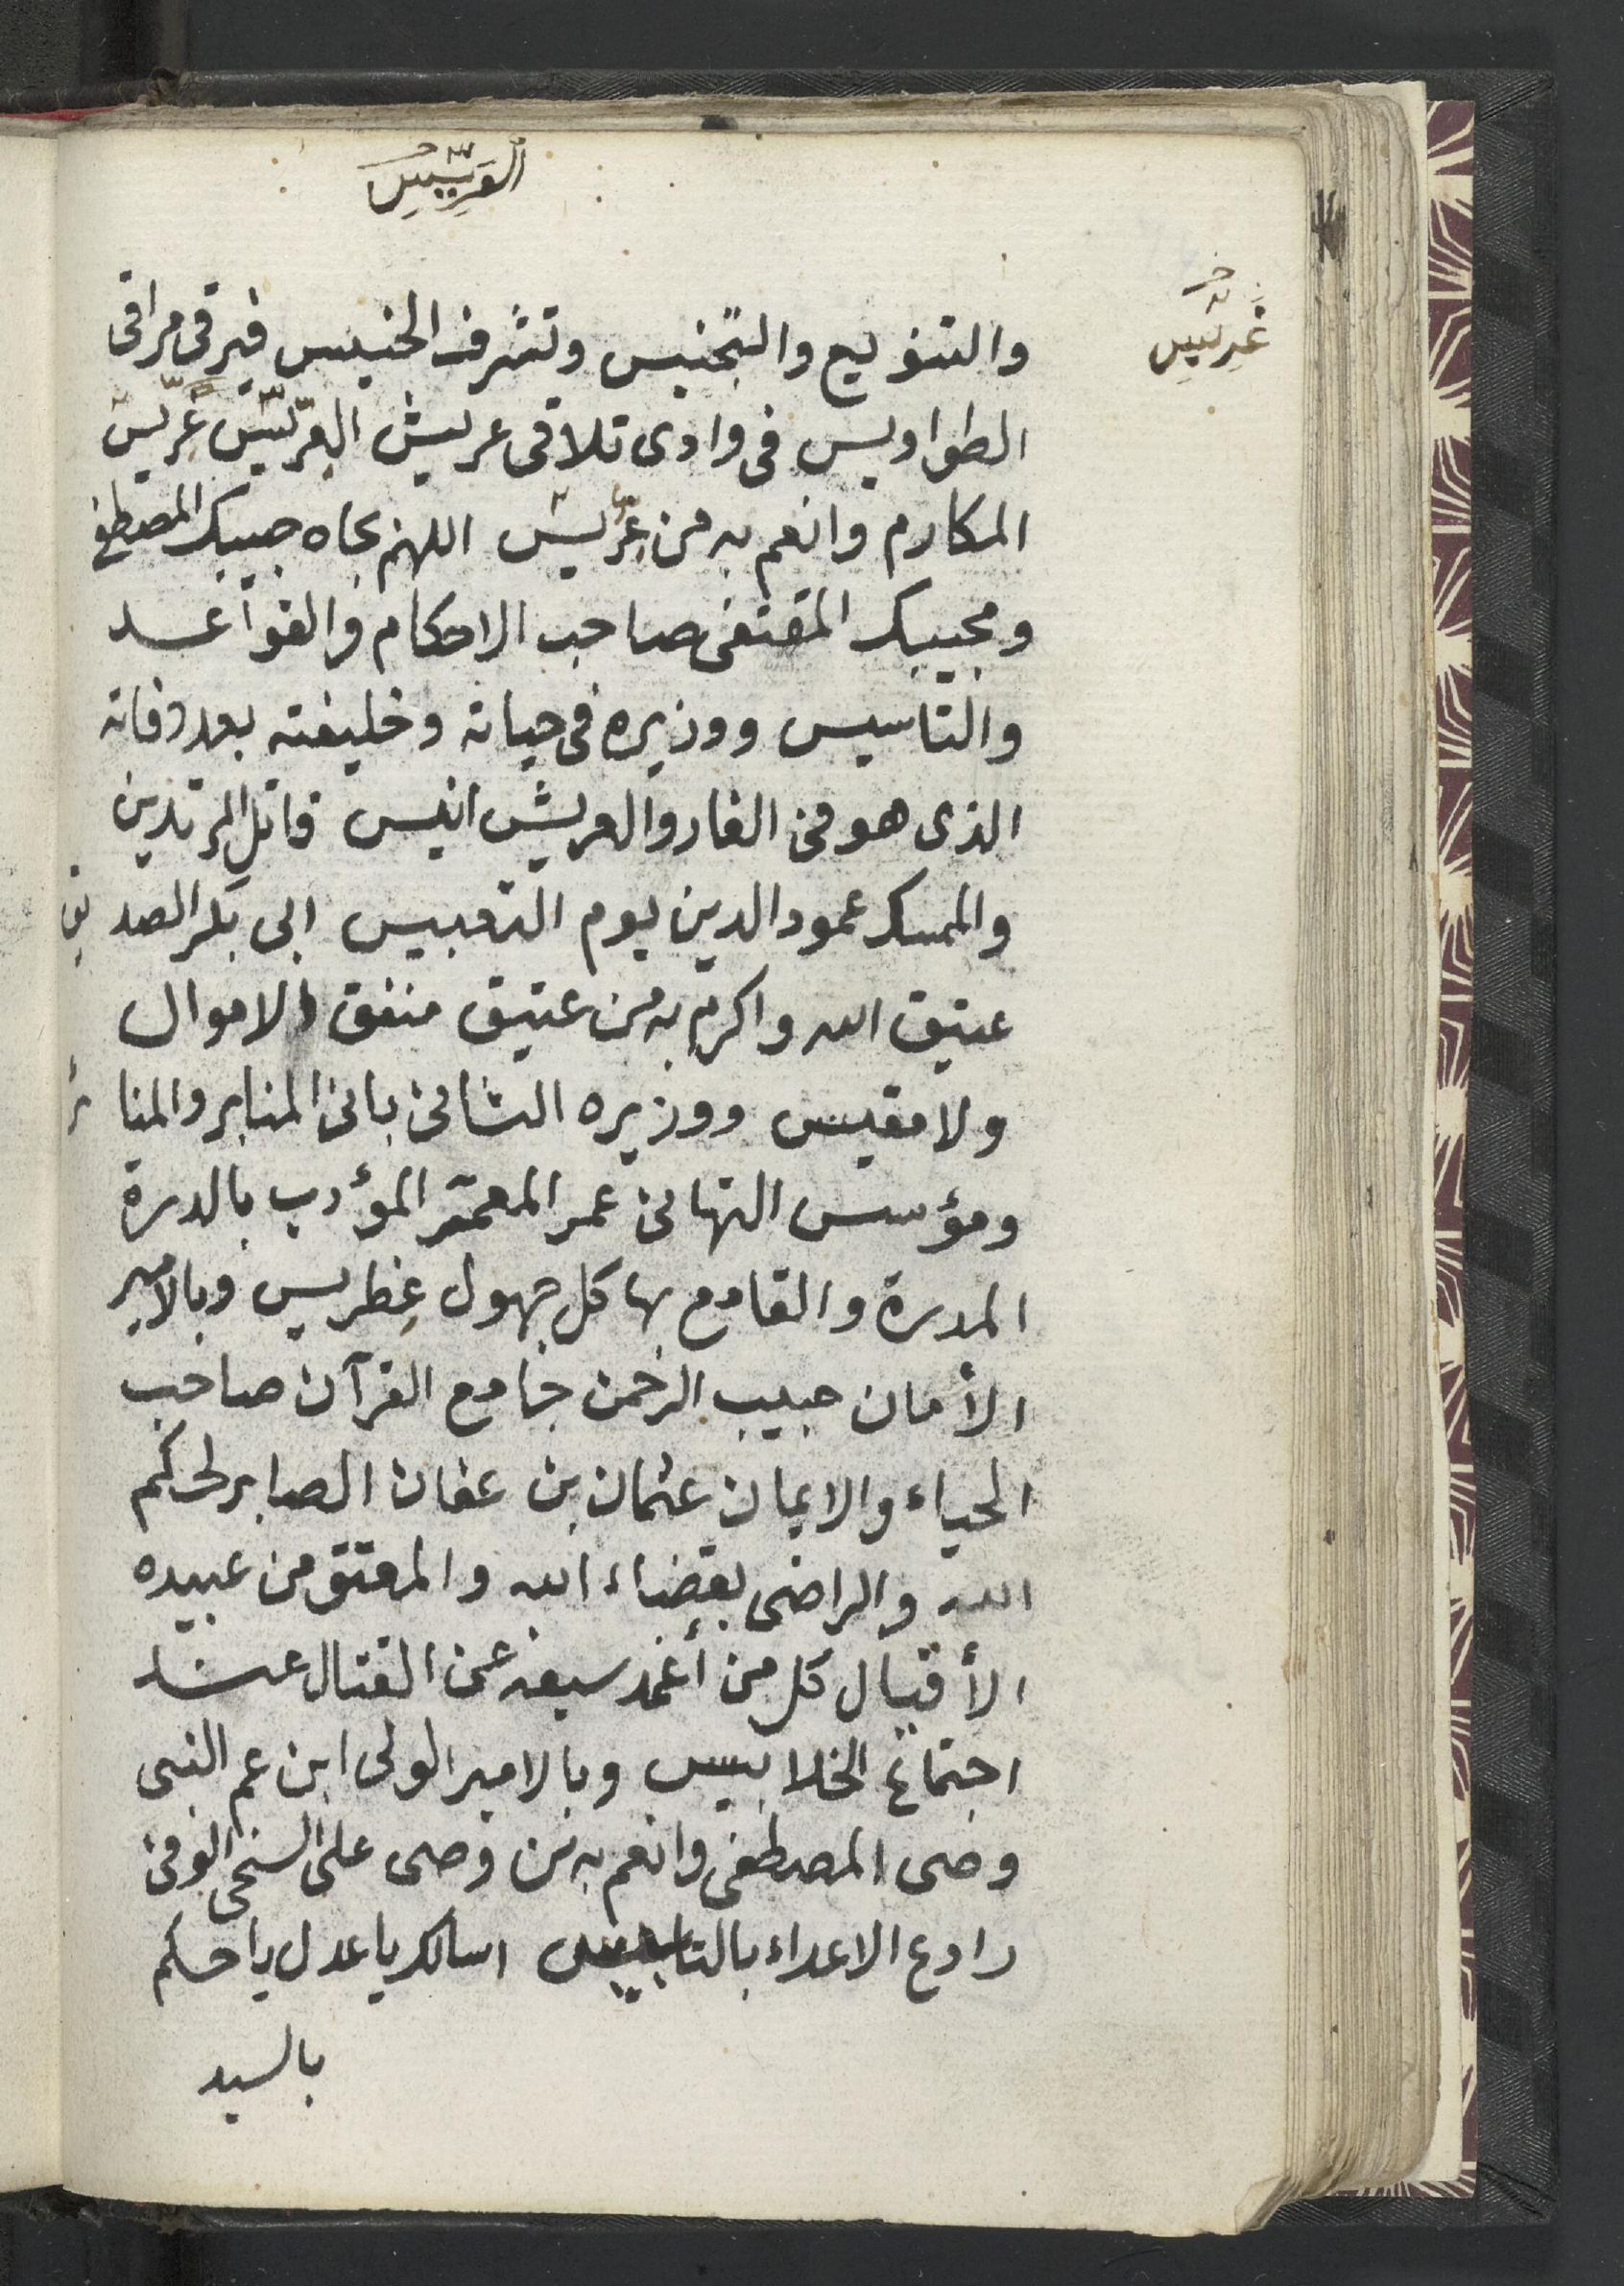 العريس
غريس
والتنويع والتجنيس وتشرف الخنيس فيرقى مراقى
الطواويس فى وادى تلاقى عريش العريّس غريس
المكارم وانعم به من غريس اللهم بجاه حبيبك المصطفى
ومجيبك المقتفى صاحب الاحكام والقواعد
والتاسيس ووزيره فى حياته وخليفته بعد وفاته
الذى هو فى الغار والعريش انيس قاتل المرتدين
والممسك عمود الدين يوم التعبيس ابى بكر الصديق
عتيق الله واكرم به من عتيق منفق الاموال
ولا مقيس ووزيره الثانى بانى المنابر والمنائر
ومؤسس التهانى عمر المعمّر المؤدب بالدرة
المدرة والقامع بها كل جهول غِطريس وبالامير
الأمان حبيب الرحمن جامع القرآن صاحب
الحياء والايمان عثمان بن عفان الصابر لحكم
الله والراضى بقضاء الله والمعتق من عبيده
الأقيال كل من أغمد سيفه عن القتال عند
اجتماع الخلابيس وبالامير الولى ابن عم النبى
وصى المصطفى وانعم به من وصى على السخى الوفى
رادع الاعداء اسالك يا عدل يا حكم
بالسيد